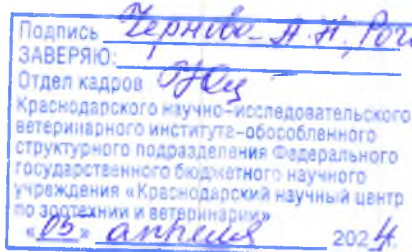 Подпись Чернова А.Н., Рого
ЗАВЕРЯЮ:
Отдел кадров
Краснодарского научно-исследовательского
ветеринарного института-обособленного
структурного подразделения Федерального
государственного бюджетного научного
учреждения «Краснодарский научный центр
по зоотехнии и ветеринарии»
«05» апреля 2024